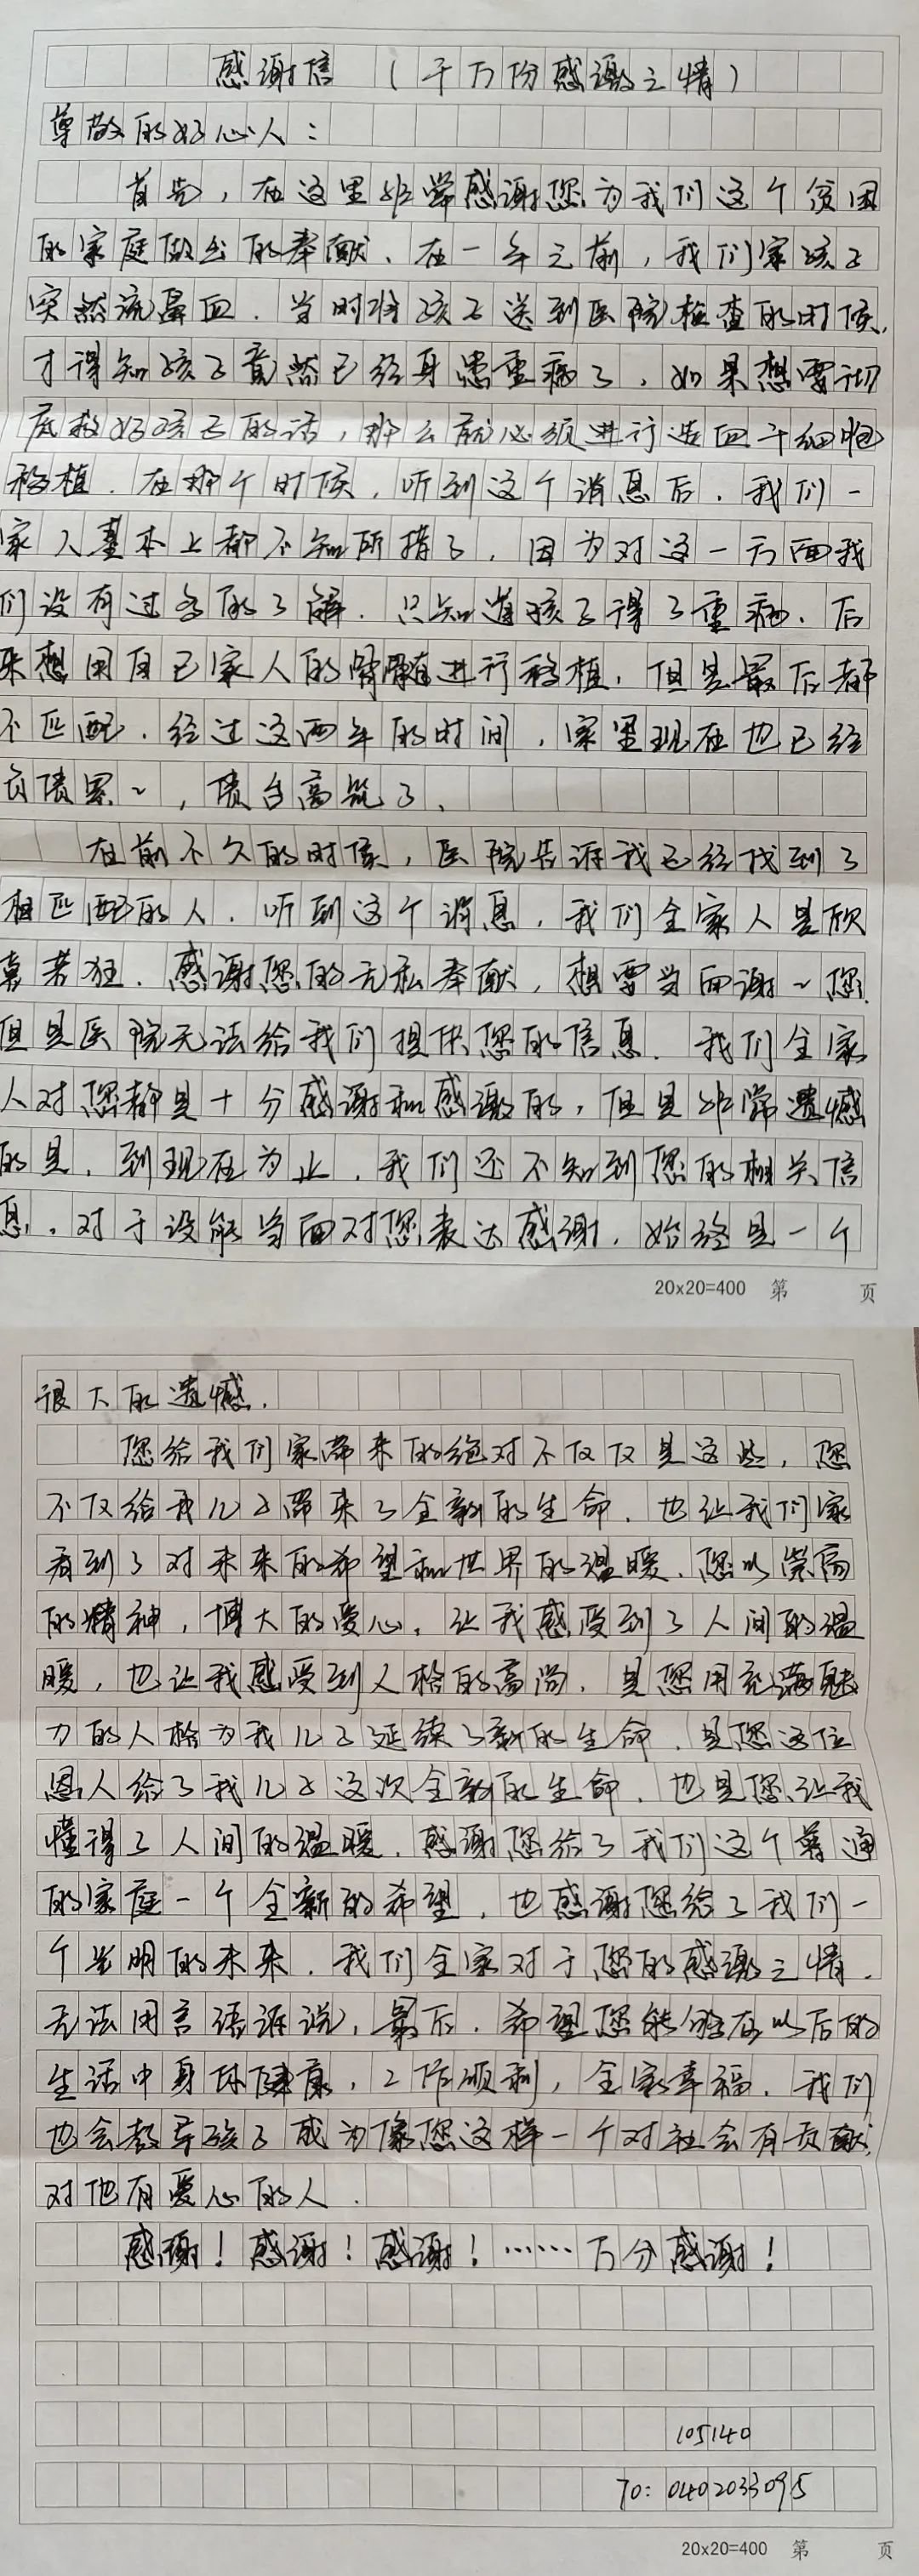 感谢信 (千万份感激之情)
尊敬的好心人:
首先,在这里非常感谢您为我们这个贫困
的家庭做出的奉献、在一年之前,我们家孩子
突然流鼻血.当时将孩子送到医院检查的时候,
才得知孩子竟然已经身患重病了、如果想要彻
底救好孩子的话,那么就必须进行造血干细胞
移植.在那个时候,听到这个消息后.我们一
家人基本上都不知所措了.因为对这一方面我
们没有过多的了解.只知道孩子得了重病、后
来想用自己家人的骨髓进行移植.但是最后都
不匹配.经过这两年的时间,家里现在也已经
负债累~,债台高筑了、
在前不久的时候,医院告诉我已经找到了
相匹配的人.听到这个消息,我们全家人是欣
喜若狂.感谢您的无私奉献,想要当面谢~您.
但是医院无法给我们提供您的信息.我们全家
人对您都是十分感谢和感激的,但是非常遗憾
的是,到现在为止.我们还不知到您的相关信
息.对于没能当面对您表达感谢.始终是一个
20x20=400 第 页
很大的遗憾.
您给我们家带来的绝对不仅仅是这些,您
不仅给我儿子带来了全新的生命.也让我们家
看到了对未来的希望和世界的温暖、您以崇高
的精神,博大的爱心.让我感受到了人间的温
暖,也让我感受到人格的高尚.是您用充满魅
力的人格为我儿子延续了新的生命.是您这位
恩人给了我儿子这次全新的生命.也是您让我
懂得了人间的温暖.感谢您给了我们这个普通
的家庭一个全新的希望,也感谢您给了我们一
个光明的未来.我们全家对于您的感激之情.
无法用言语诉说,最后.希望您能够在以后的
生活中身体健康,工作顺利,全家幸福.我们
也会教导孩子成为像您这样一个对社会有贡献,
对他有爱心的人.
感谢!感谢!感谢!……万分感谢!
105140
To: 0402033095
20x20=400 第 页